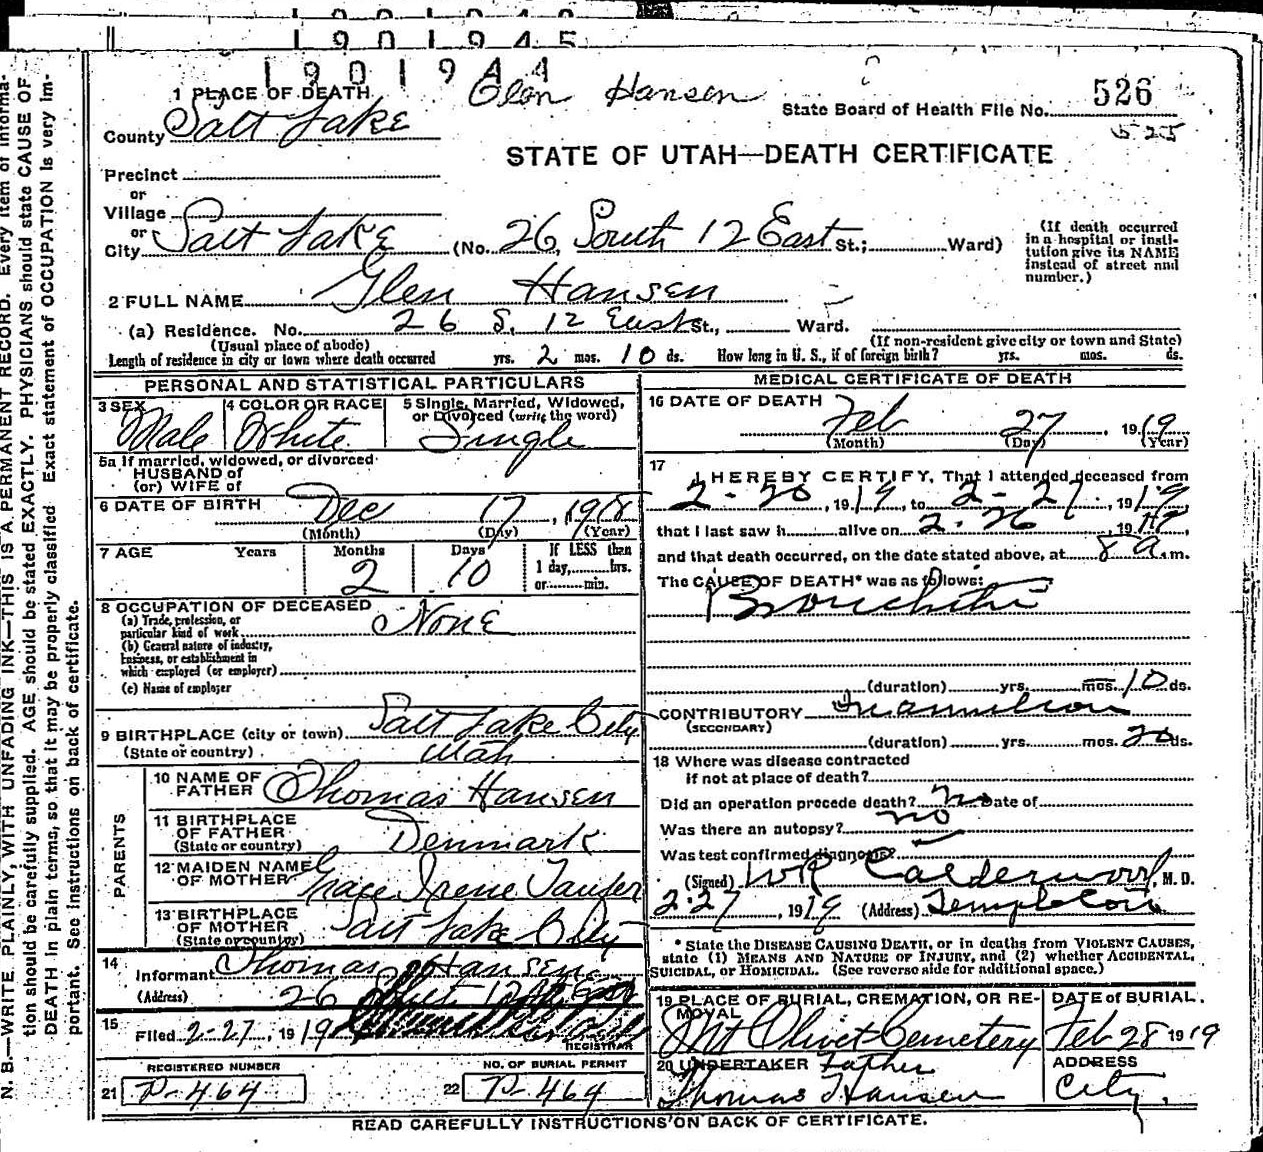 1901945
1901944
Glen Hansen
1 PLACE OF DEATH
State Board of Health File No. 526
County Salt Lake
STATE OF UTAH—DEATH CERTIFICATE
Precinct
or
Village
or
City Salt Lake (No. 26 South 12 East St.; Ward)
(If death occurred
in a hospital or insti-
tution give its NAME
instead of street and
number.)
2 FULL NAME Glen Hansen
(a) Residence. No. 26 S. 12 East St., Ward.
(Usual place of abode)
(If non-resident give city or town and State)
Length of residence in city or town where death occurred yrs. 2 mos. 10 ds. How long in U. S., if of foreign birth? yrs. mos. ds.
PERSONAL AND STATISTICAL PARTICULARS
3 SEX Male
4 COLOR OR RACE White
5 Single, Married, Widowed,
or Divorced (write the word)
Single
5a If married, widowed, or divorced
HUSBAND of
(or) WIFE of
6 DATE OF BIRTH Dec 17, 1918
(Month) (Day) (Year)
7 AGE Years Months Days If LESS than
2 10 1 day, hrs.
or min.
8 OCCUPATION OF DECEASED
(a) Trade, profession, or
particular kind of work None
(b) General nature of industry,
business, or establishment in
which employed (or employer)
(c) Name of employer
9 BIRTHPLACE (city or town) Salt Lake City
(State or country) Utah
PARENTS
10 NAME OF
FATHER Thomas Hansen
11 BIRTHPLACE
OF FATHER
(State or country) Denmark
12 MAIDEN NAME
OF MOTHER Grace Irene
13 BIRTHPLACE
OF MOTHER
(State or country) Salt Lake City
14
Informant Thomas Hansen
(Address) 26 South 12 East
15
Filed 2-27, 1919
REGISTRAR
REGISTERED NUMBER
21 P-464
NO. OF BURIAL PERMIT
22 P-464
MEDICAL CERTIFICATE OF DEATH
16 DATE OF DEATH
Feb 27, 1919
(Month) (Day) (Year)
17
I HEREBY CERTIFY, That I attended deceased from
2-20, 1919, to 2-27, 1919
that I last saw h alive on 2-26, 1919,
and that death occurred, on the date stated above, at 8 a.m.
The CAUSE OF DEATH* was as follows:
Bronchitis
(duration) yrs. mos. 10 ds.
CONTRIBUTORY Inanition
(SECONDARY)
(duration) yrs. mos. 20 ds.
18 Where was disease contracted
if not at place of death?
Did an operation precede death? No Date of
Was there an autopsy? no
Was test confirmed diagnosis?
(Signed) WR Calderwood, M. D.
2-27, 1919 (Address) Templeton
* State the DISEASE CAUSING DEATH, or in deaths from VIOLENT CAUSES,
state (1) MEANS AND NATURE OF INJURY, and (2) whether ACCIDENTAL,
SUICIDAL, or HOMICIDAL. (See reverse side for additional space.)
19 PLACE OF BURIAL, CREMATION, OR RE-
MOVAL
Mt Olivet Cemetery
DATE of BURIAL.
Feb 28 1919
20 UNDERTAKER Father
Thomas Hansen
ADDRESS
City.
READ CAREFULLY INSTRUCTIONS ON BACK OF CERTIFICATE.
N. B.—WRITE PLAINLY, WITH UNFADING INK—THIS IS A PERMANENT RECORD. Every item of informa-
tion should be carefully supplied. AGE should be stated EXACTLY. PHYSICIANS should state CAUSE OF
DEATH in plain terms, so that it may be properly classified. Exact statement of OCCUPATION is very im-
portant. See instructions on back of certificate.